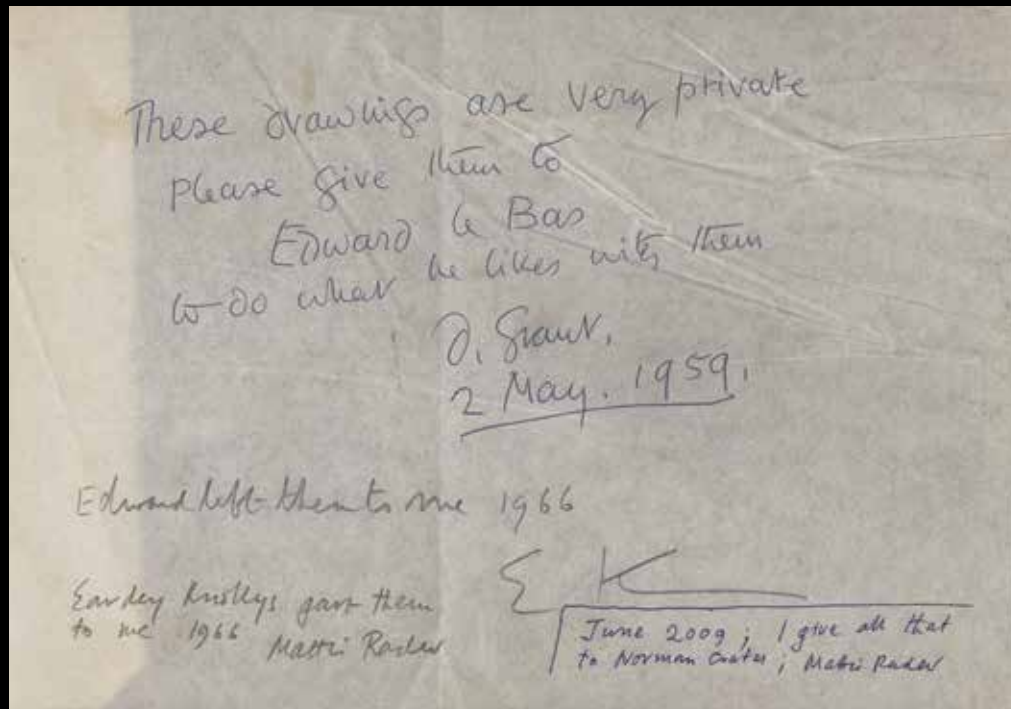 These drawings are very private
please give them to
Edward le Bas
to do what he likes with them
D. Grant.
2 May. 1959.
Edward left them to me 1966
E K
Eardley Knollys gave them
to me 1966 Mattei Radev
June 2009; I give all that
to Norman Coates; Mattei Radev